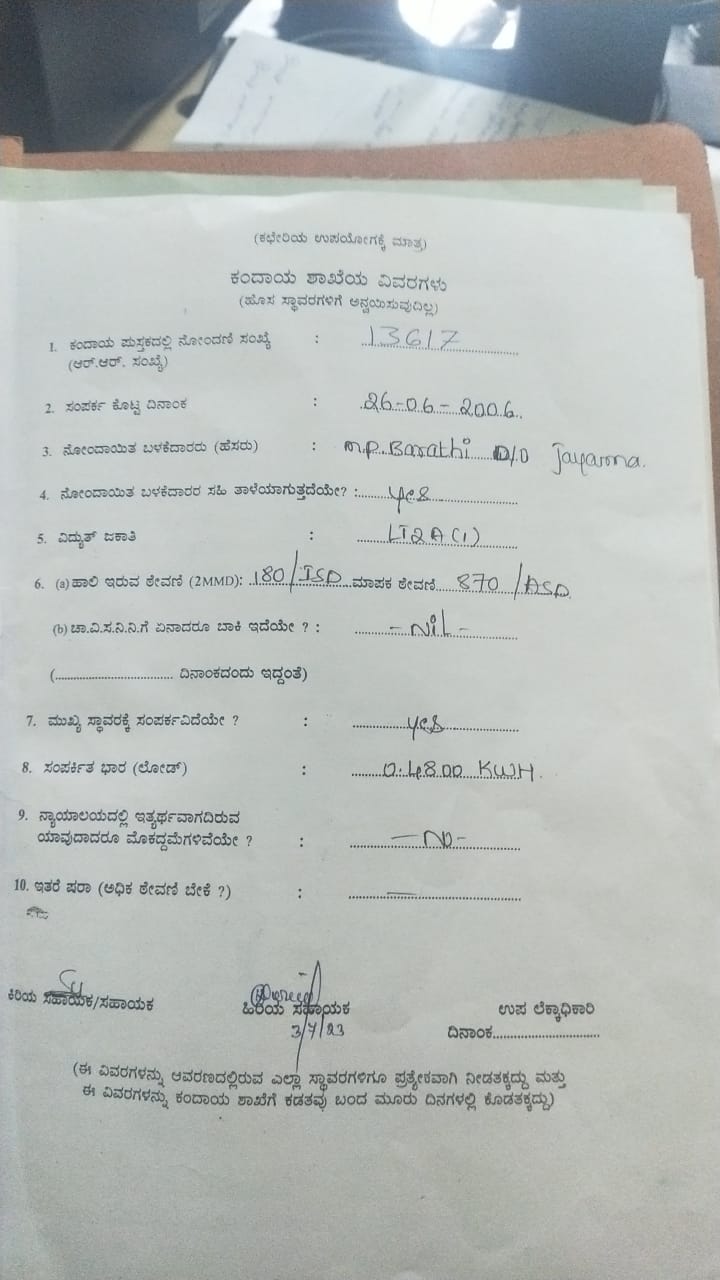 (ಕಛೇರಿಯ ಉಪಯೋಗಕ್ಕೆ ಮಾತ್ರ)
ಕಂದಾಯ ಶಾಖೆಯ ವಿವರಗಳು
(ಹೊಸ ಸ್ಥಾವರಗಳಿಗೆ ಅನ್ವಯಿಸುವುದಿಲ್ಲ)
1. ಕಂದಾಯ ಪುಸ್ತಕದಲ್ಲಿ ನೋಂದಣಿ ಸಂಖ್ಯೆ : 13617
(ಆರ್.ಆರ್. ಸಂಖ್ಯೆ)
2. ಸಂಪರ್ಕ ಕೊಟ್ಟ ದಿನಾಂಕ : 26-06-2006
3. ನೋಂದಾಯಿತ ಬಳಕೆದಾರರು (ಹೆಸರು) : M.P. Barathi D/O Jayarma.
4. ನೋಂದಾಯಿತ ಬಳಕೆದಾರರ ಸಹಿ ತಾಳೆಯಾಗುತ್ತದೆಯೇ? : yes
5. ವಿದ್ಯುತ್ ಜಕಾತಿ : LT2A(1)
6. (a) ಹಾಲಿ ಇರುವ ಠೇವಣಿ (2MMD): 180/ISD ಮಾಪಕ ಠೇವಣಿ 870/ASD
(b) ಚಾ.ವಿ.ಸ.ನಿ.ನಿ.ಗೆ ಏನಾದರೂ ಬಾಕಿ ಇದೆಯೇ ? : - NiL -
(.................................. ದಿನಾಂಕದಂದು ಇದ್ದಂತೆ)
7. ಮುಖ್ಯ ಸ್ಥಾವರಕ್ಕೆ ಸಂಪರ್ಕವಿದೆಯೇ ? : yes
8. ಸಂಪರ್ಕಿತ ಭಾರ (ಲೋಡ್) : 0.4800 KWH.
9. ನ್ಯಾಯಾಲಯದಲ್ಲಿ ಇತ್ಯರ್ಥವಾಗದಿರುವ
ಯಾವುದಾದರೂ ಮೊಕದ್ದಮೆಗಳಿವೆಯೇ ? : - NO -
10. ಇತರೆ ಷರಾ (ಅಧಿಕ ಠೇವಣಿ ಬೇಕೆ ?) : —
ಕಿರಿಯ ಸಹಾಯಕ/ಸಹಾಯಕ
ಹಿರಿಯ ಸಹಾಯಕ
3/7/23
ಉಪ ಲೆಕ್ಕಾಧಿಕಾರಿ
ದಿನಾಂಕ..............................
(ಈ ವಿವರಗಳನ್ನು ಆವರಣದಲ್ಲಿರುವ ಎಲ್ಲಾ ಸ್ಥಾವರಗಳಿಗೂ ಪ್ರತ್ಯೇಕವಾಗಿ ನೀಡತಕ್ಕದ್ದು ಮತ್ತು
ಈ ವಿವರಗಳನ್ನು ಕಂದಾಯ ಶಾಖೆಗೆ ಕಡತವು ಬಂದ ಮೂರು ದಿನಗಳಲ್ಲಿ ಕೊಡತಕ್ಕದ್ದು)